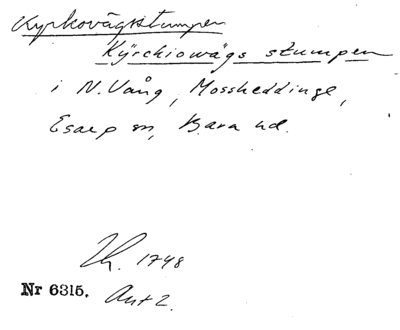 Kyrkovägstumpen
Kÿrchiowägs stumpen
i N. Vång, Mossheddinge,
Esarp sn, Bara hd.
1748
Nr 6315. Akt 2.